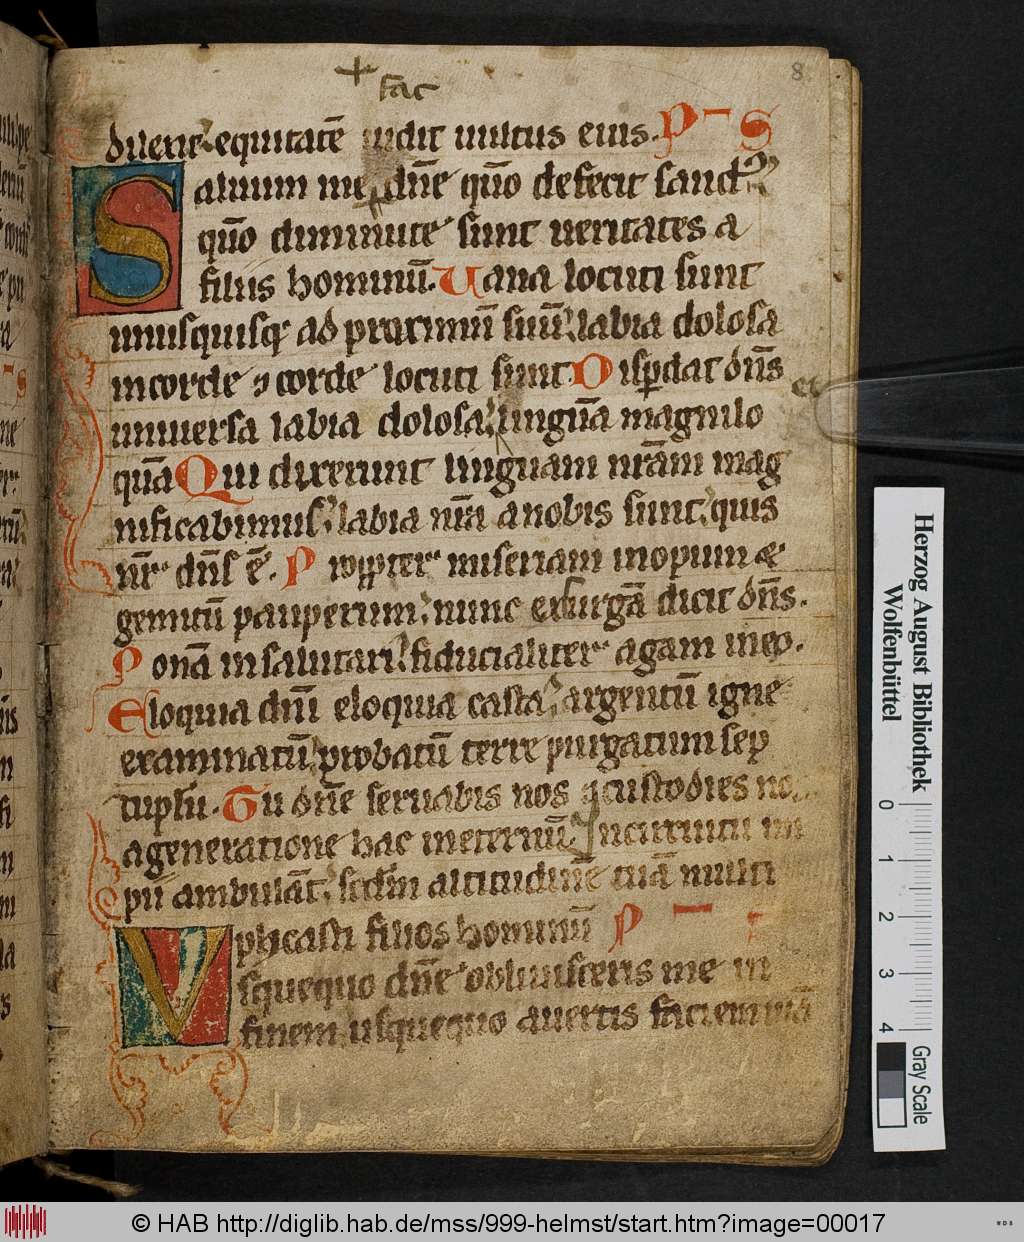 8
fac
dilexit equitatē uidit uultus eius. P S
Saluum me dn̄e qm̄o defecit sanctꝰ
qm̄o diminute sunt ueritates a
filiis hominū. Uana locuti sunt
unusquisq ad proximū suū labia dolosa
in corde ⁊ corde locuti sunt. Disꝑdat dn̄s
uniuersa labia dolosa, et linguā magnilo
quā Qui dixerunt linguam nr̄am mag
nificabimus, labia nr̄a a nobis sunt, quis
nr̄ dn̄s ē. Propter miseriam inopum &
gemitū pauperum, nunc exsurgā dicit dn̄s.
Ponā in salutari fiducialiter agam in eo.
Eloquia dn̄i eloquia casta, argentū igne
examinatū, probatū terre purgatum sep
tuplū. Tu dn̄e seruabis nos ⁊ custodies no
a generatione hac in eternū. In circuitu im
pii ambulāt, scd̄m altitudinē tuā multi
plicasti filios hominū P
Vsquequo dn̄e obliuisceris me in
finem, usquequo auertis faciem
Herzog August Bibliothek
Wolfenbüttel
0 1 2 3 4
Gray Scale
© HAB http://diglib.hab.de/mss/999-helmst/start.htm?image=00017